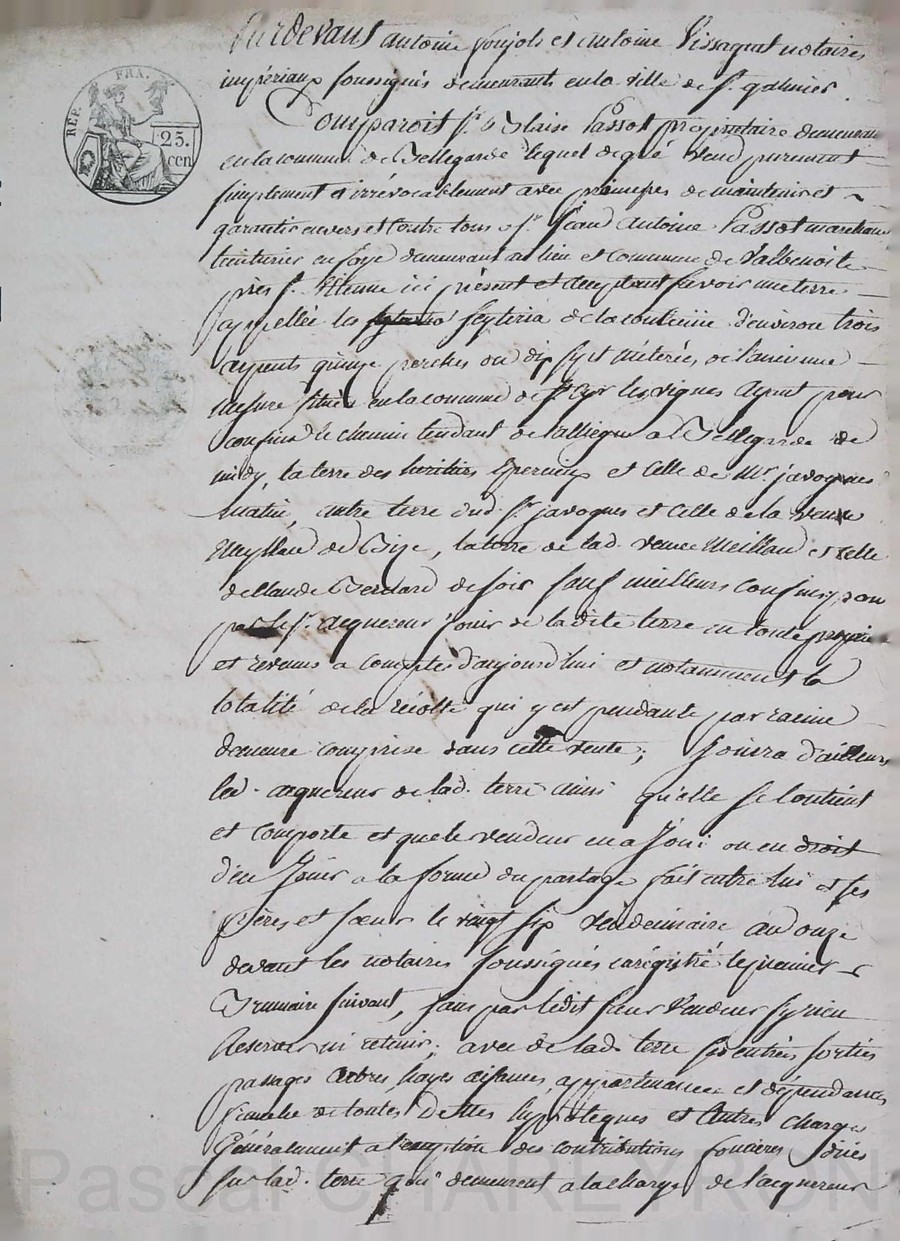 REP. FRA.
25. cen
Pardevant antoine foujols et antoine Vissaguet notaires
impériaux soussignés demeurants en la ville de St. galmier.
Comparoit Sr. Blaise Passot propriétaire demeurant
en la commune de Bellegarde lequel de gré vend purement
simplement et irrévocablement avec promesses de maintenir et
garantir envers et contre tous a Sr. Jean Antoine Passot marchand
teinturier en soye demeurant au lieu et commune de Valbenoite
près St. Etienne ici présent et acceptant savoir une terre
appellée les seyteria de la contenue d'environ trois
arpents quinze perches ou dix sept méterées, de l'ancienne
mesure située en la commune de St. Cyr les vignes ayant pour
confins le chemin tendant de à Bellegarde de
midy, la terre des héritiers et celle de Mr. javogues
matin, autre terre dud. Sr. javogues et celle de la veuve
de Bize, la terre de lad. veuve Meilland et celle
de Claude de soir sauf meilleurs confins, pour
par le Sr. acquereur jouir de la dite terre en toute propriété
et revenus a compter d'aujourd'hui et notamment la
totalité de la récolte qui y est pendante par racine
demeure comprise dans cette vente; Jouira d'ailleurs
led. acquereur de lad. terre ainsi qu'elle se contient
et comporte et que le vendeur en a Joui ou eu droit
d'en Jouir a la forme du partage fait entre lui et ses
frères et soeur le vingt six Vendemiaire an onze
devant les notaires soussignés enrégistré le premier
Brumaire suivant, sans par ledit sieur Vendeur s'y rien
Reserver ni retenir; avec de lad. terre ses entrées sorties
passages Arbres hayes aisances, appartenances et dépendances
franche de toutes Dettes hypoteques et Autres charges
Généralement a l'exeption des contributions foncières dües
sur lad. terre qui demeurent a la charge de l'acquereur
Pascal CHAREYRON